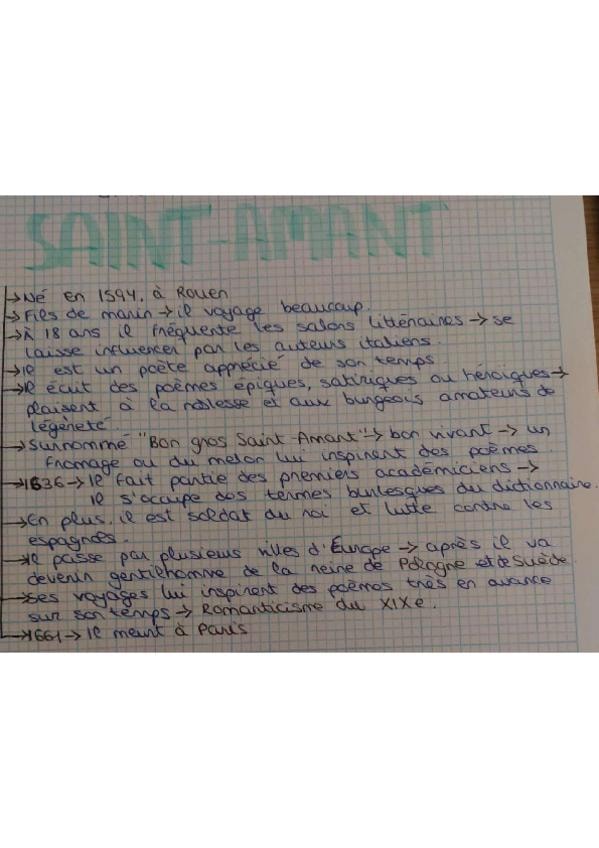 SAINT-AMANT
→ Né en 1594, à Rouen
→ Fils de marin → il voyage beaucoup.
→ À 18 ans il fréquente les salons littéraires → se
laisse influencer par les auteurs italiens.
→ Il est un poète apprécié de son temps
→ Il écrit des poèmes épiques, satiriques ou héroïques →
plaisent à la noblesse et aux burgeois amateurs de
légèreté.
→ Surnommé "Bon gros Saint-Amant" → bon vivant → un
fromage ou du melon lui inspirent des poèmes.
→ 1636 → Il fait partie des premiers académiciens →
il s'occupe des termes burlesques du dictionnaire.
→ En plus, il est soldat du roi et lutte contre les
espagnols.
→ Il passe par plusieurs villes d'Europe → après il va
devenir gentilhomme de la reine de Pologne et de Suède.
→ ses voyages lui inspirent des poèmes très en avance
sur son temps → Romanticisme du XIXe.
→ 1661 → Il meurt à Paris